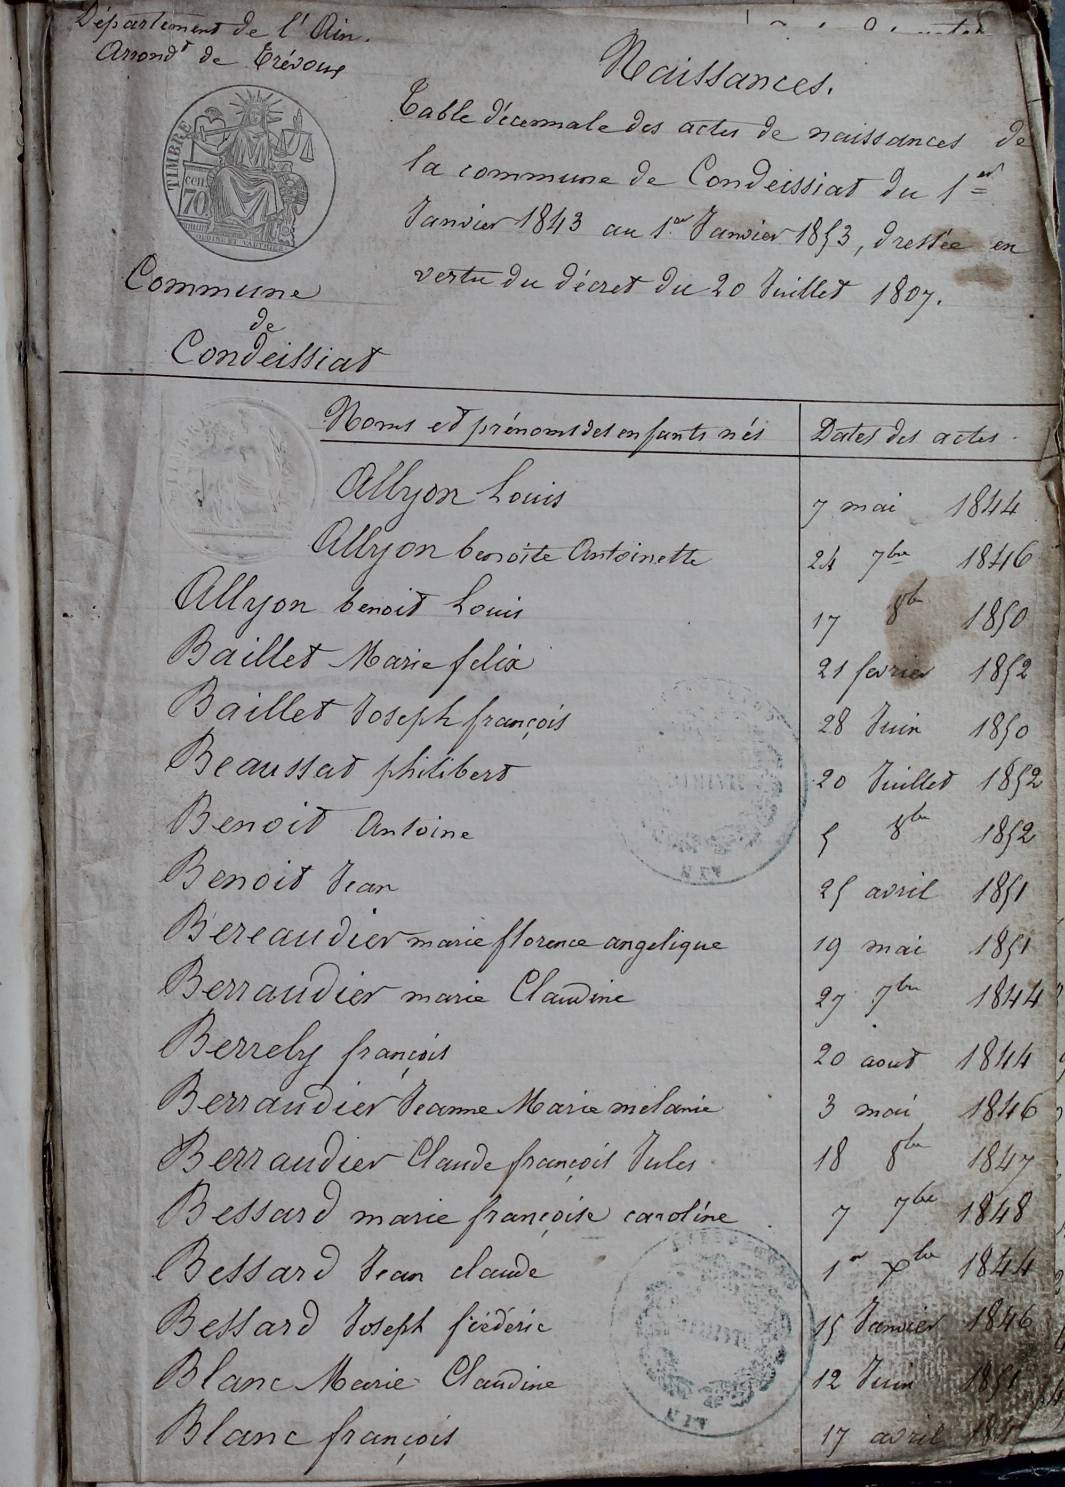 Département de l'Ain.
Arrondt de Trévoux
TIMBRE
cen
70
Commune
de
Condeissiat
Naissances.
Table décennale des actes de naissances de
la commune de Condeissiat du 1er
Janvier 1843 au 1er Janvier 1853, dressée en
vertu du décret du 20 Juillet 1807.
Noms et prénoms des enfants nés Dates des actes.
Allyon Louis 7 mai 1844
Allyon benoîte Antoinette 24 7bre 1846
Allyon benoit Louis 17 8bre 1850
Baillet Marie felix 21 fevrier 1852
Baillet Joseph françois 28 Juin 1850
Beaussat philibert 20 Juillet 1852
Benoit Antoine 5 8bre 1852
Benoit Jean 25 avril 1851
Béreaudier marie florence angelique 19 mai 1851
Berraudier marie Claudine 27 7bre 1844
Berrely françois 20 aout 1844
Berraudier Jeanne Marie melanie 3 mai 1846
Berraudier Claude françois Jules 18 8bre 1847
Bessard marie françoise caroline 7 7bre 1848
Bessard Jean claude 1er Xbre 1844
Bessard Joseph fréderic 15 Janvier 1846
Blanc Marie Claudine 12 Juin 1851
Blanc françois 17 avril
AIN
AIN